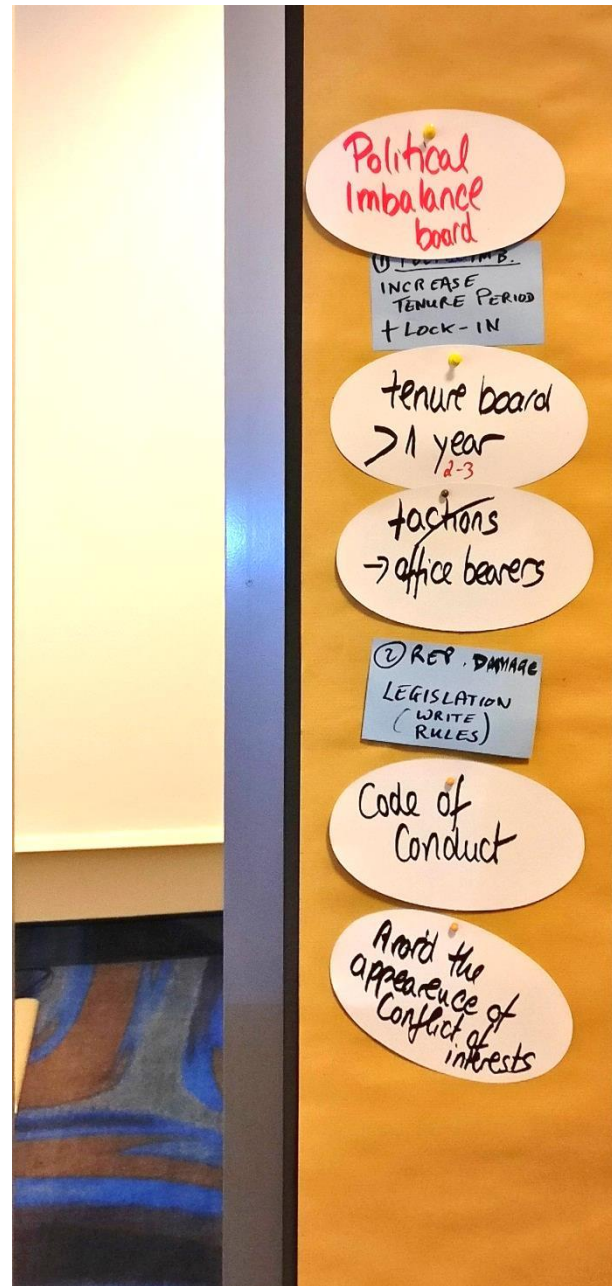 Political
Imbalance
board
INCREASE
TENURE PERIOD
+ LOCK-IN
tenure board
>1 year
2-3
factions
→ office bearers
② REP. DAMAGE
LEGISLATION
(WRITE
RULES)
Code of
Conduct
Avoid the
appearence of
Conflict of
interests